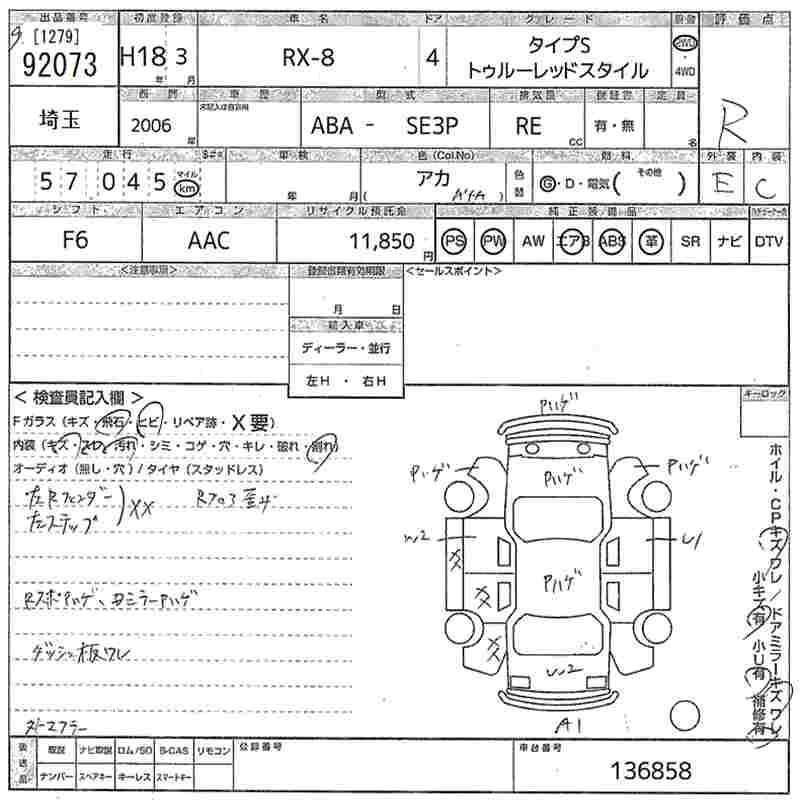 出品番号 初度登録 車名 ドア グレード 駆動 評価点
[1279]
92073 H18 3 RX-8 4 タイプS 2WD
年 月 トゥルーレッドスタイル 4WD
R
埼玉 西暦 車歴 型式 排気量 保証書 定員
未記入は自家用
2006 年 ABA - SE3P RE cc 有・無 名
走行 車検 色(Col.No) 燃料 外装 内装
57,045 マイル km 年 月 アカ ( ) 色替 G・D・電気( その他 ) E C
シフト エアコン リサイクル預託金 純正装備品
F6 AAC 11,850 円 PS PW AW エアB ABS 革 SR ナビ DTV
<注意事項> 登録書類有効期限 <セールスポイント>
月 日
輸入車
ディーラー・並行
左H ・ 右H
< 検査員記入欄 > キーロック
Fガラス (キズ・飛石・ヒビ・リペア跡・X要)
内装 (キズ・スレ・汚れ・シミ・コゲ・穴・キレ・破れ・割れ)
オーディオ (無し・穴) / タイヤ (スタッドレス)
左Rフェンダー
左ステップ XX
Rフロア歪み
RスポPハゲ、ドミラーPハゲ
ダッシュ板ワレ
Pハゲ
Pハゲ Pハゲ Pハゲ
W2 XX U1
XX Pハゲ
XX W2
A1
ホイル・CPキズワレ/ドアミラーキズワレ
小キズ有 小U有 補修有
後送品 取説 ナビ取説 ロム/SD B-CAS リモコン 登録番号 車台番号
ナンバー スペアキー キーレス スマートキー 136858